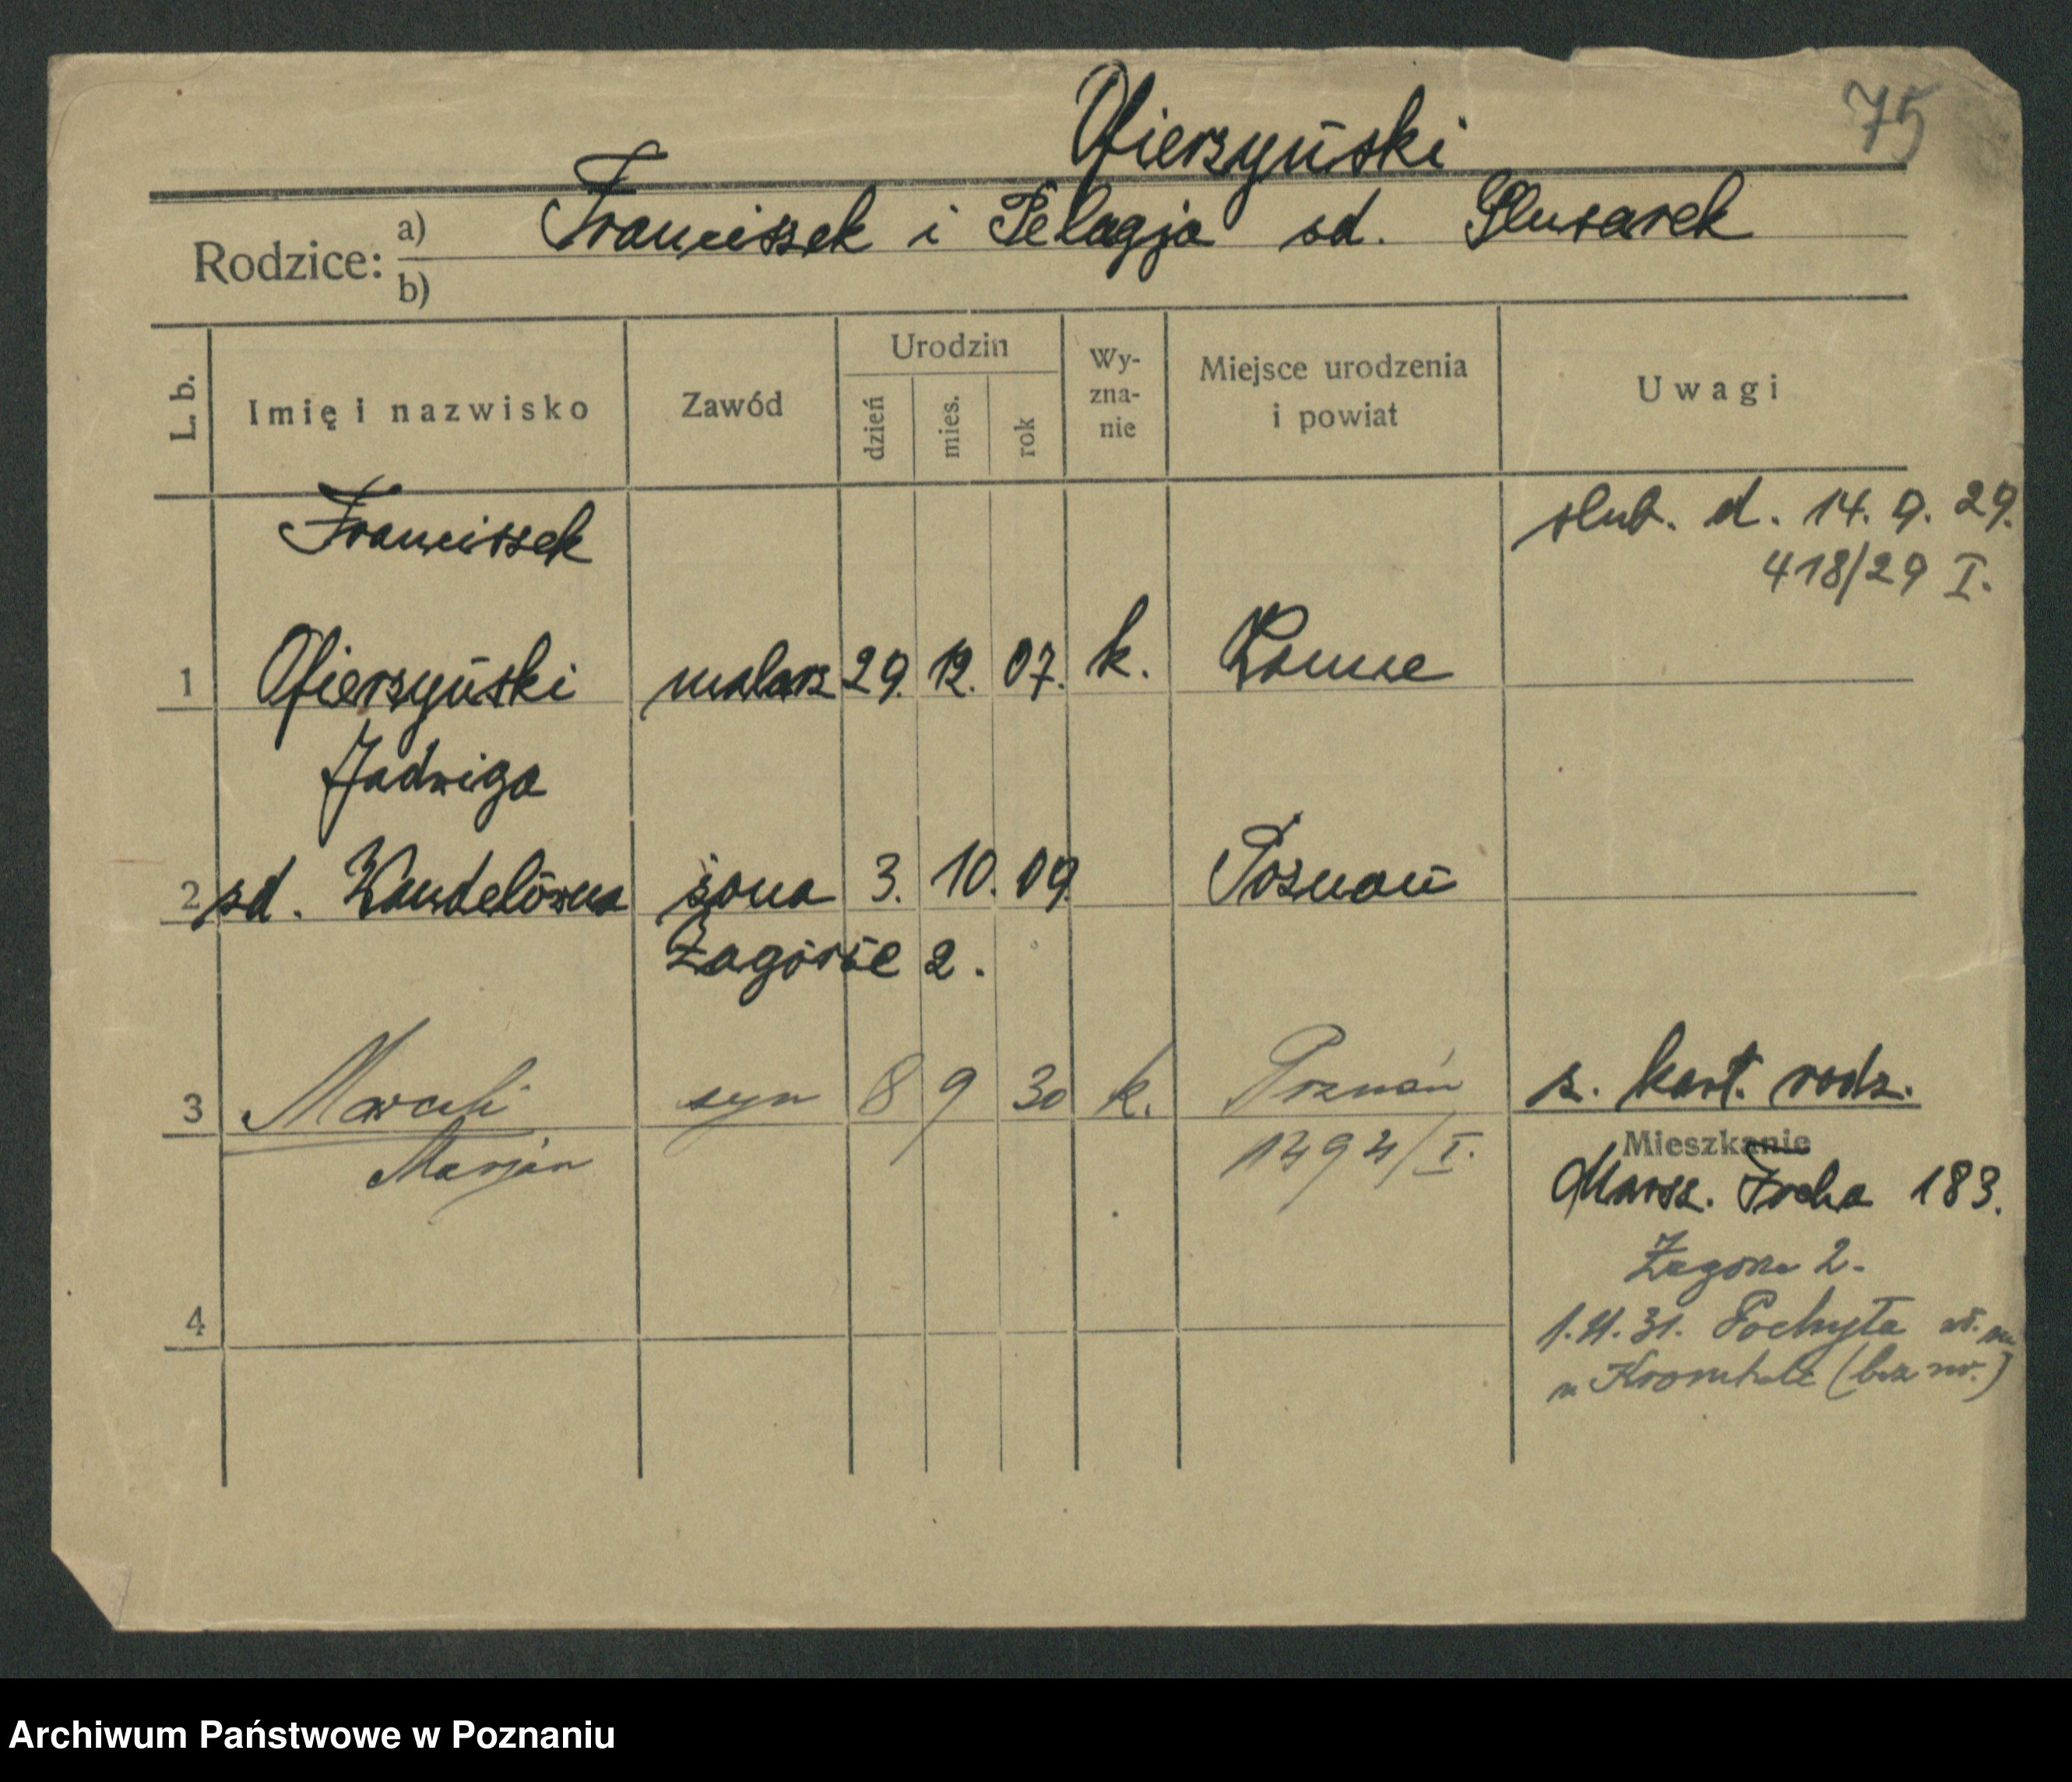 75
Ofierzyński
Rodzice: a) Franciszek i Pelagja zd. Slusarek
b)
L. b. Imię i nazwisko Zawód Urodzin dzień mies. rok Wy-zna-nie Miejsce urodzenia i powiat Uwagi
Franciszek ślub. d. 14. 9. 29.
418/29 I.
1 Ofierzyński malarz 29. 12. 07. k.
Jadwiga
2 zd. żona 3. 10. 09. Poznań
Zagórze 2.
3 Marceli syn 8 9 30 k. Poznań z. kart. rodz.
Marjan /I. Mieszkanie
Marsz. Focha 183.
Zagórze 2.
4
(bez nr.)
Archiwum Państwowe w Poznaniu